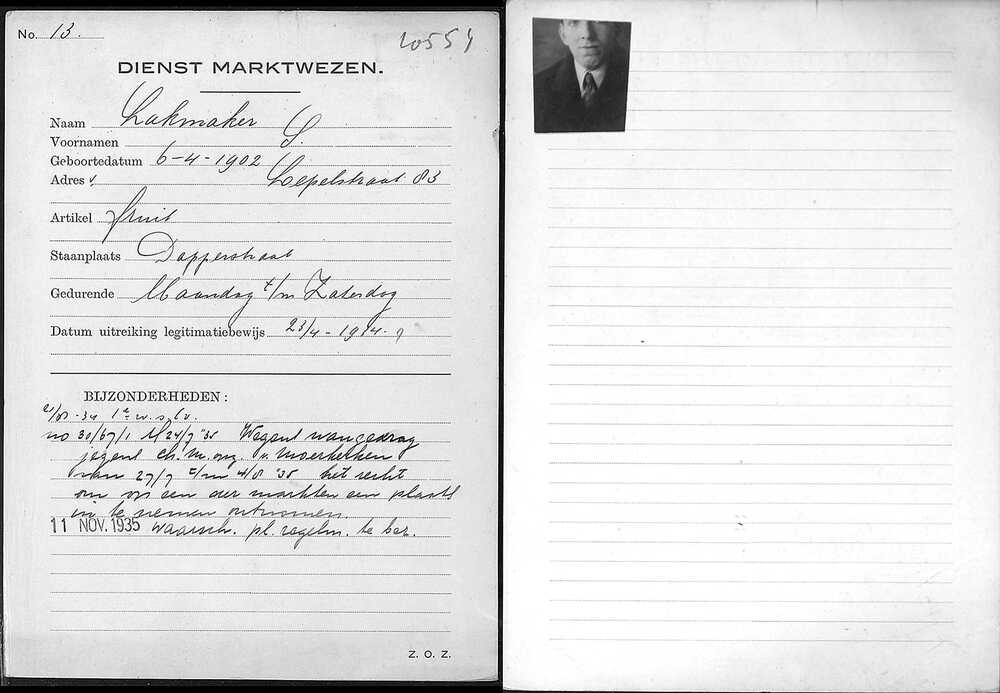 No. 13.
20554
DIENST MARKTWEZEN.
Naam Lakmaker
Voornamen S.
Geboortedatum 6-4-1902
Adres v. Lepelstraat 83
Artikel fruit
Staanplaats Dapperstraat
Gedurende Maandag t/m Zaterdag
Datum uitreiking legitimatiebewijs 23/4-1934.
BIJZONDERHEDEN:
-34 1e w.s.l.v.
no 30/67/1 M 24/7 '35 Wegens wangedrag
jegens Ch. M. opz. v. Moerkerken
van 27/7 t/m 4/8 '35 het recht
om op een der markten een plaats
in te nemen ontnomen.
11 NOV. 1935 waarsch. pl. regelm. te bez.
Z. O. Z.